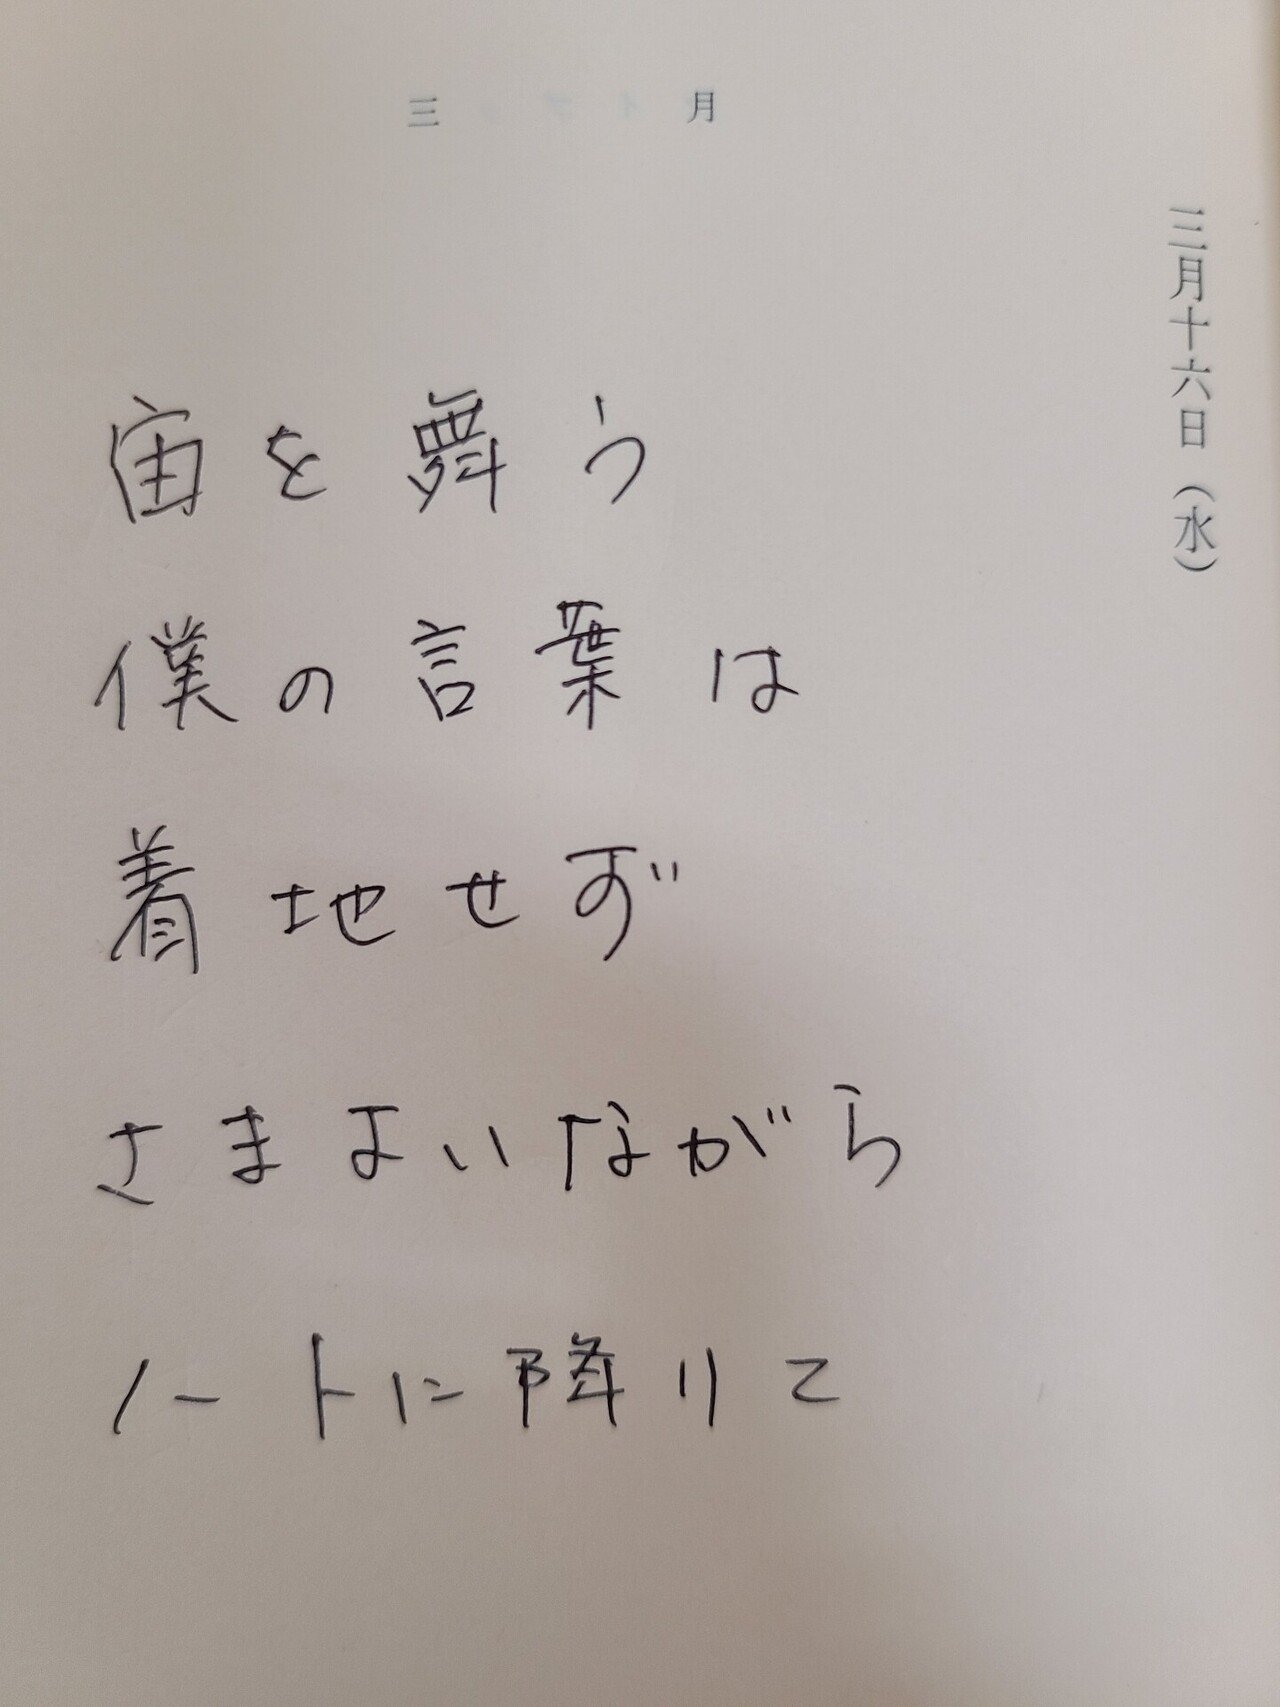 三月
三月十六日（水）
宙を舞う
僕の言葉は
着地せず
さまよいながら
ノートに降りて